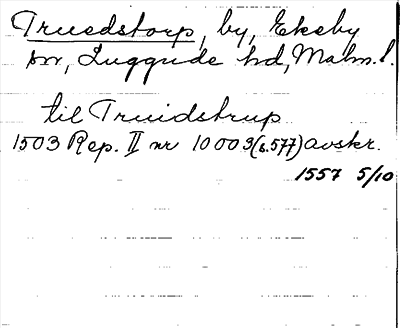 Truedstorp, by, Ekeby
sn, Luggude hd, Malm. l.
til Truidstrup
1503 Rep. II nr 10003 (s. 577) avskr.
1557 5/10